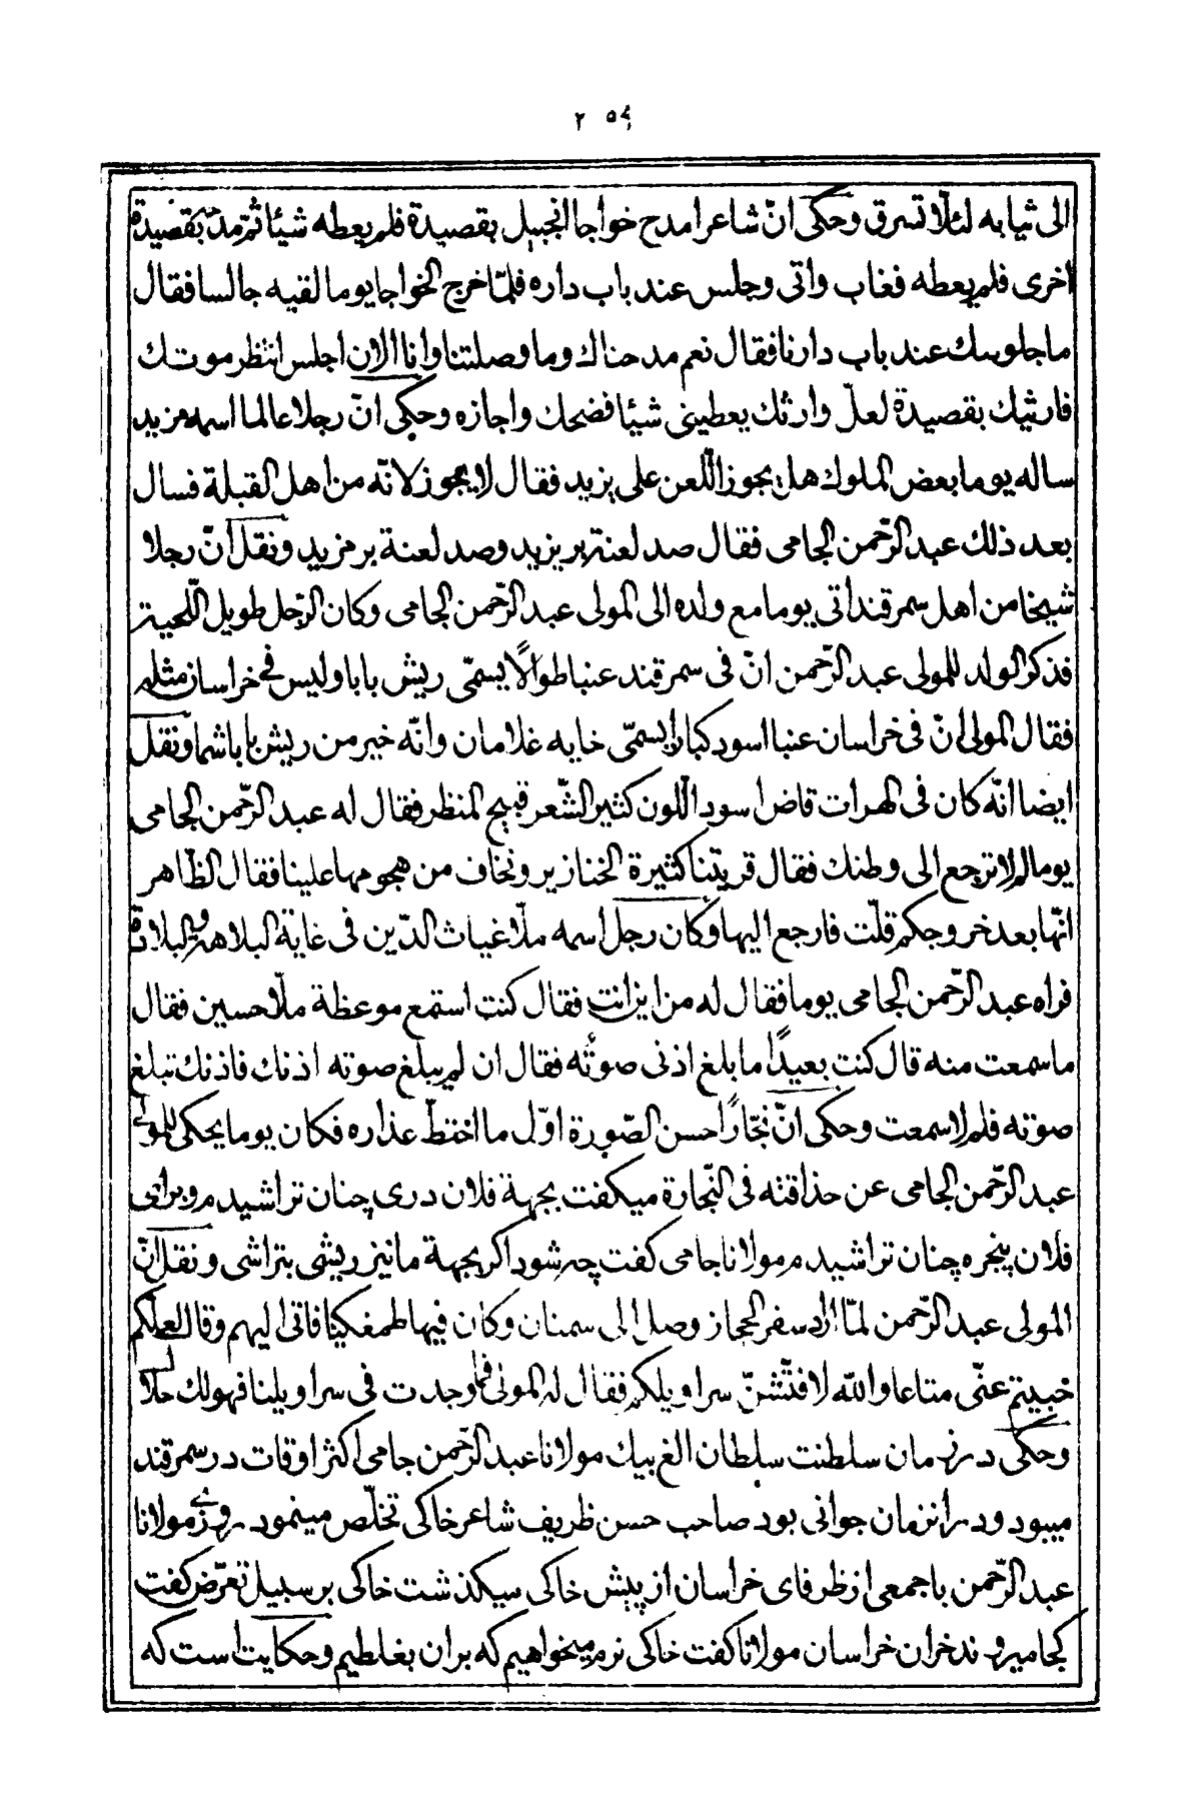 ٢٥٩
الى ثيابه لئلّا تسرق وحكى انّ شاعرا مدح خواجا بقصيدة فلم يعطه شيئا ثم مدحه بقصيدة
اخرى فلم يعطه فغاب واتى وجلس عند باب داره فلمّا خرج الخواجا يوما لقيه جالسا فقال
ما جلوسك عند باب دارنا فقال نعم مدحناك وما وصلتنا وانا الان اجلس انتظر موتك
فارثيك بقصيدة لعلّ وارثك يعطينى شيئا فضحك واجازه وحكى انّ رجلا عالما اسمه مزيد
ساله يوما بعض الملوك هل يجوز اللّعن على يزيد فقال لا يجوز لانّه من اهل القبلة فسال
بعد ذلك عبد الرّحمن الجامى فقال صد لعنة بر يزيد وصد لعنة بر مزيد ونقل انّ رجلا
شيخا من اهل سمرقند اتى يوما مع ولده الى المولى عبد الرّحمن الجامى وكان الرّجل طويل اللّحية
فذكر الولد للمولى عبد الرّحمن انّ فى سمرقند عنبا طوالًا يسمّى ريش بابا وليس فى خراسان مثله
فقال المولى انّ فى خراسان عنبا اسود كبارا يسمّى خايه غلامان وانّه خير من ريش بابا شما ونقل
ايضا انّه كان فى الهرات قاض اسود اللّون كثير الشّعر قبيح المنظر فقال له عبد الرّحمن الجامى
يوما لم لا ترجع الى وطنك فقال قريتنا كثيرة الخنازير ونخاف من هجومها علينا فقال الظّاهر
انّها بعد خروجكم قلّت فارجع اليها وكان رجل اسمه ملّا غياث الدّين فى غاية البلاهة والبلادة
فراه عبد الرّحمن الجامى يوما فقال له من اين انت فقال كنت استمع موعظة ملّا حسين فقال
ما سمعت منه قال كنت بعيدًا ما بلغ اذنى صوته فقال ان لم يبلغ صوته اذنك فاذنك تبلغ
صوته فلم لا سمعت وحكى انّ نجّارًا حسن الصّورة اوّل ما اختطّ عذاره فكان يوما يحكى للمولى
عبد الرّحمن الجامى عن حذاقته فى النّجارة ميكفت بجهة فلان درى چنان تراشيدم وبراى
فلان پنجره چنان تراشيدم مولانا جامى كفت چه شود اكر بجهة ما نيز ريشى بتراشى ونقل انّ
المولى عبد الرّحمن لمّا اراد سفر الحجاز وصل الى سمنان وكان فيها فاتى اليهم وقال لعلّكم
خبيتم عنّى متاعا والله لافتّشنّ سراويلكم فقال له المولى فما وجدت فى سراويلنا فهو لك حلال
وحكى در زمان سلطنت سلطان الغ بيك مولانا عبد الرّحمن جامى اكثر اوقات در سمرقند
ميبود ودر انزمان جوانى بود صاحب حسن ظريف شاعر خاكى تخلّص مينمود روزى مولانا
عبد الرّحمن با جمعى از ظرفاى خراسان از پيش خاكى ميكذشت خاكى بر سبيل تعرّض كفت
كجا ميروند خران خراسان مولانا كفت خاكى نرم ميخواهيم كه بران بغلطيم وحكايت است كه